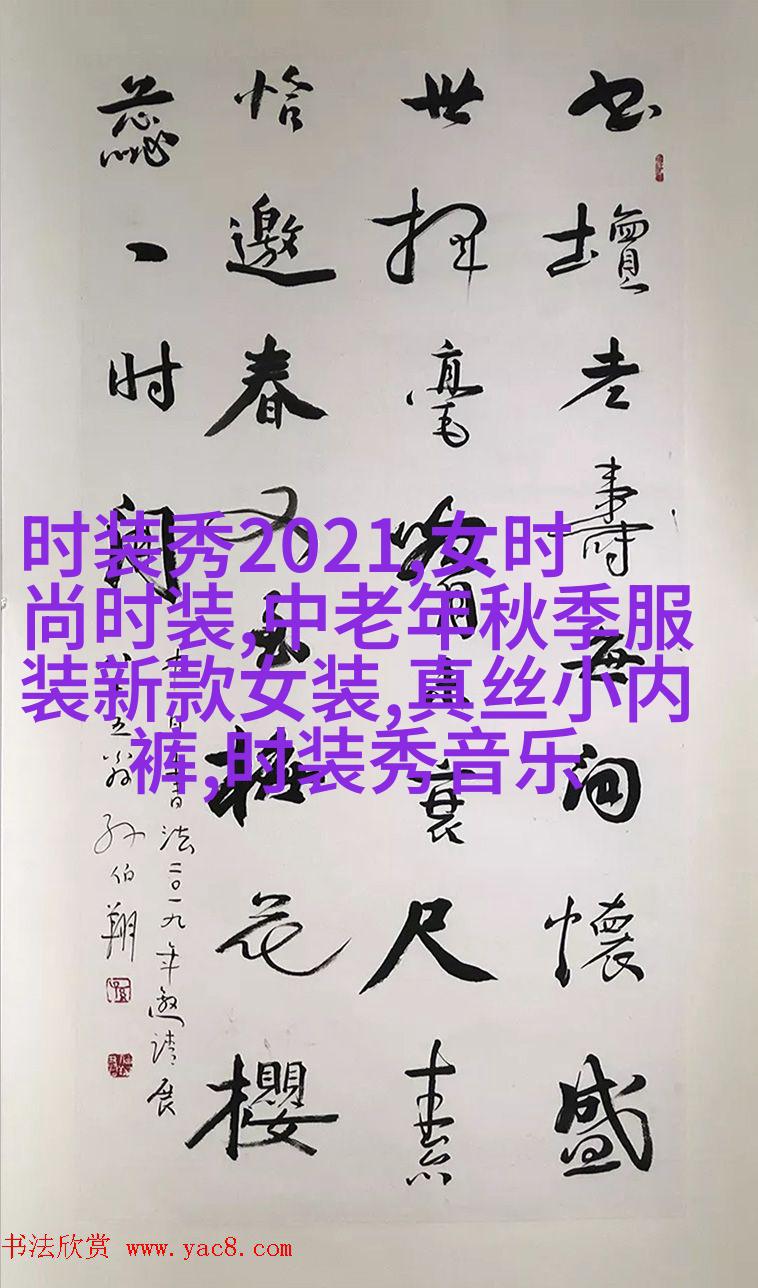 书壇老壽懷盛
世挥毫衰尺素
恰邀春又花櫻
蕊一时開
书法二〇一九年邀请展
五翁 孙伯翔
时装秀2021,女时
尚时装,中老年秋季服
装新款女装,真丝小内
裤,时装秀音乐
书法欣赏 www.yac8.com